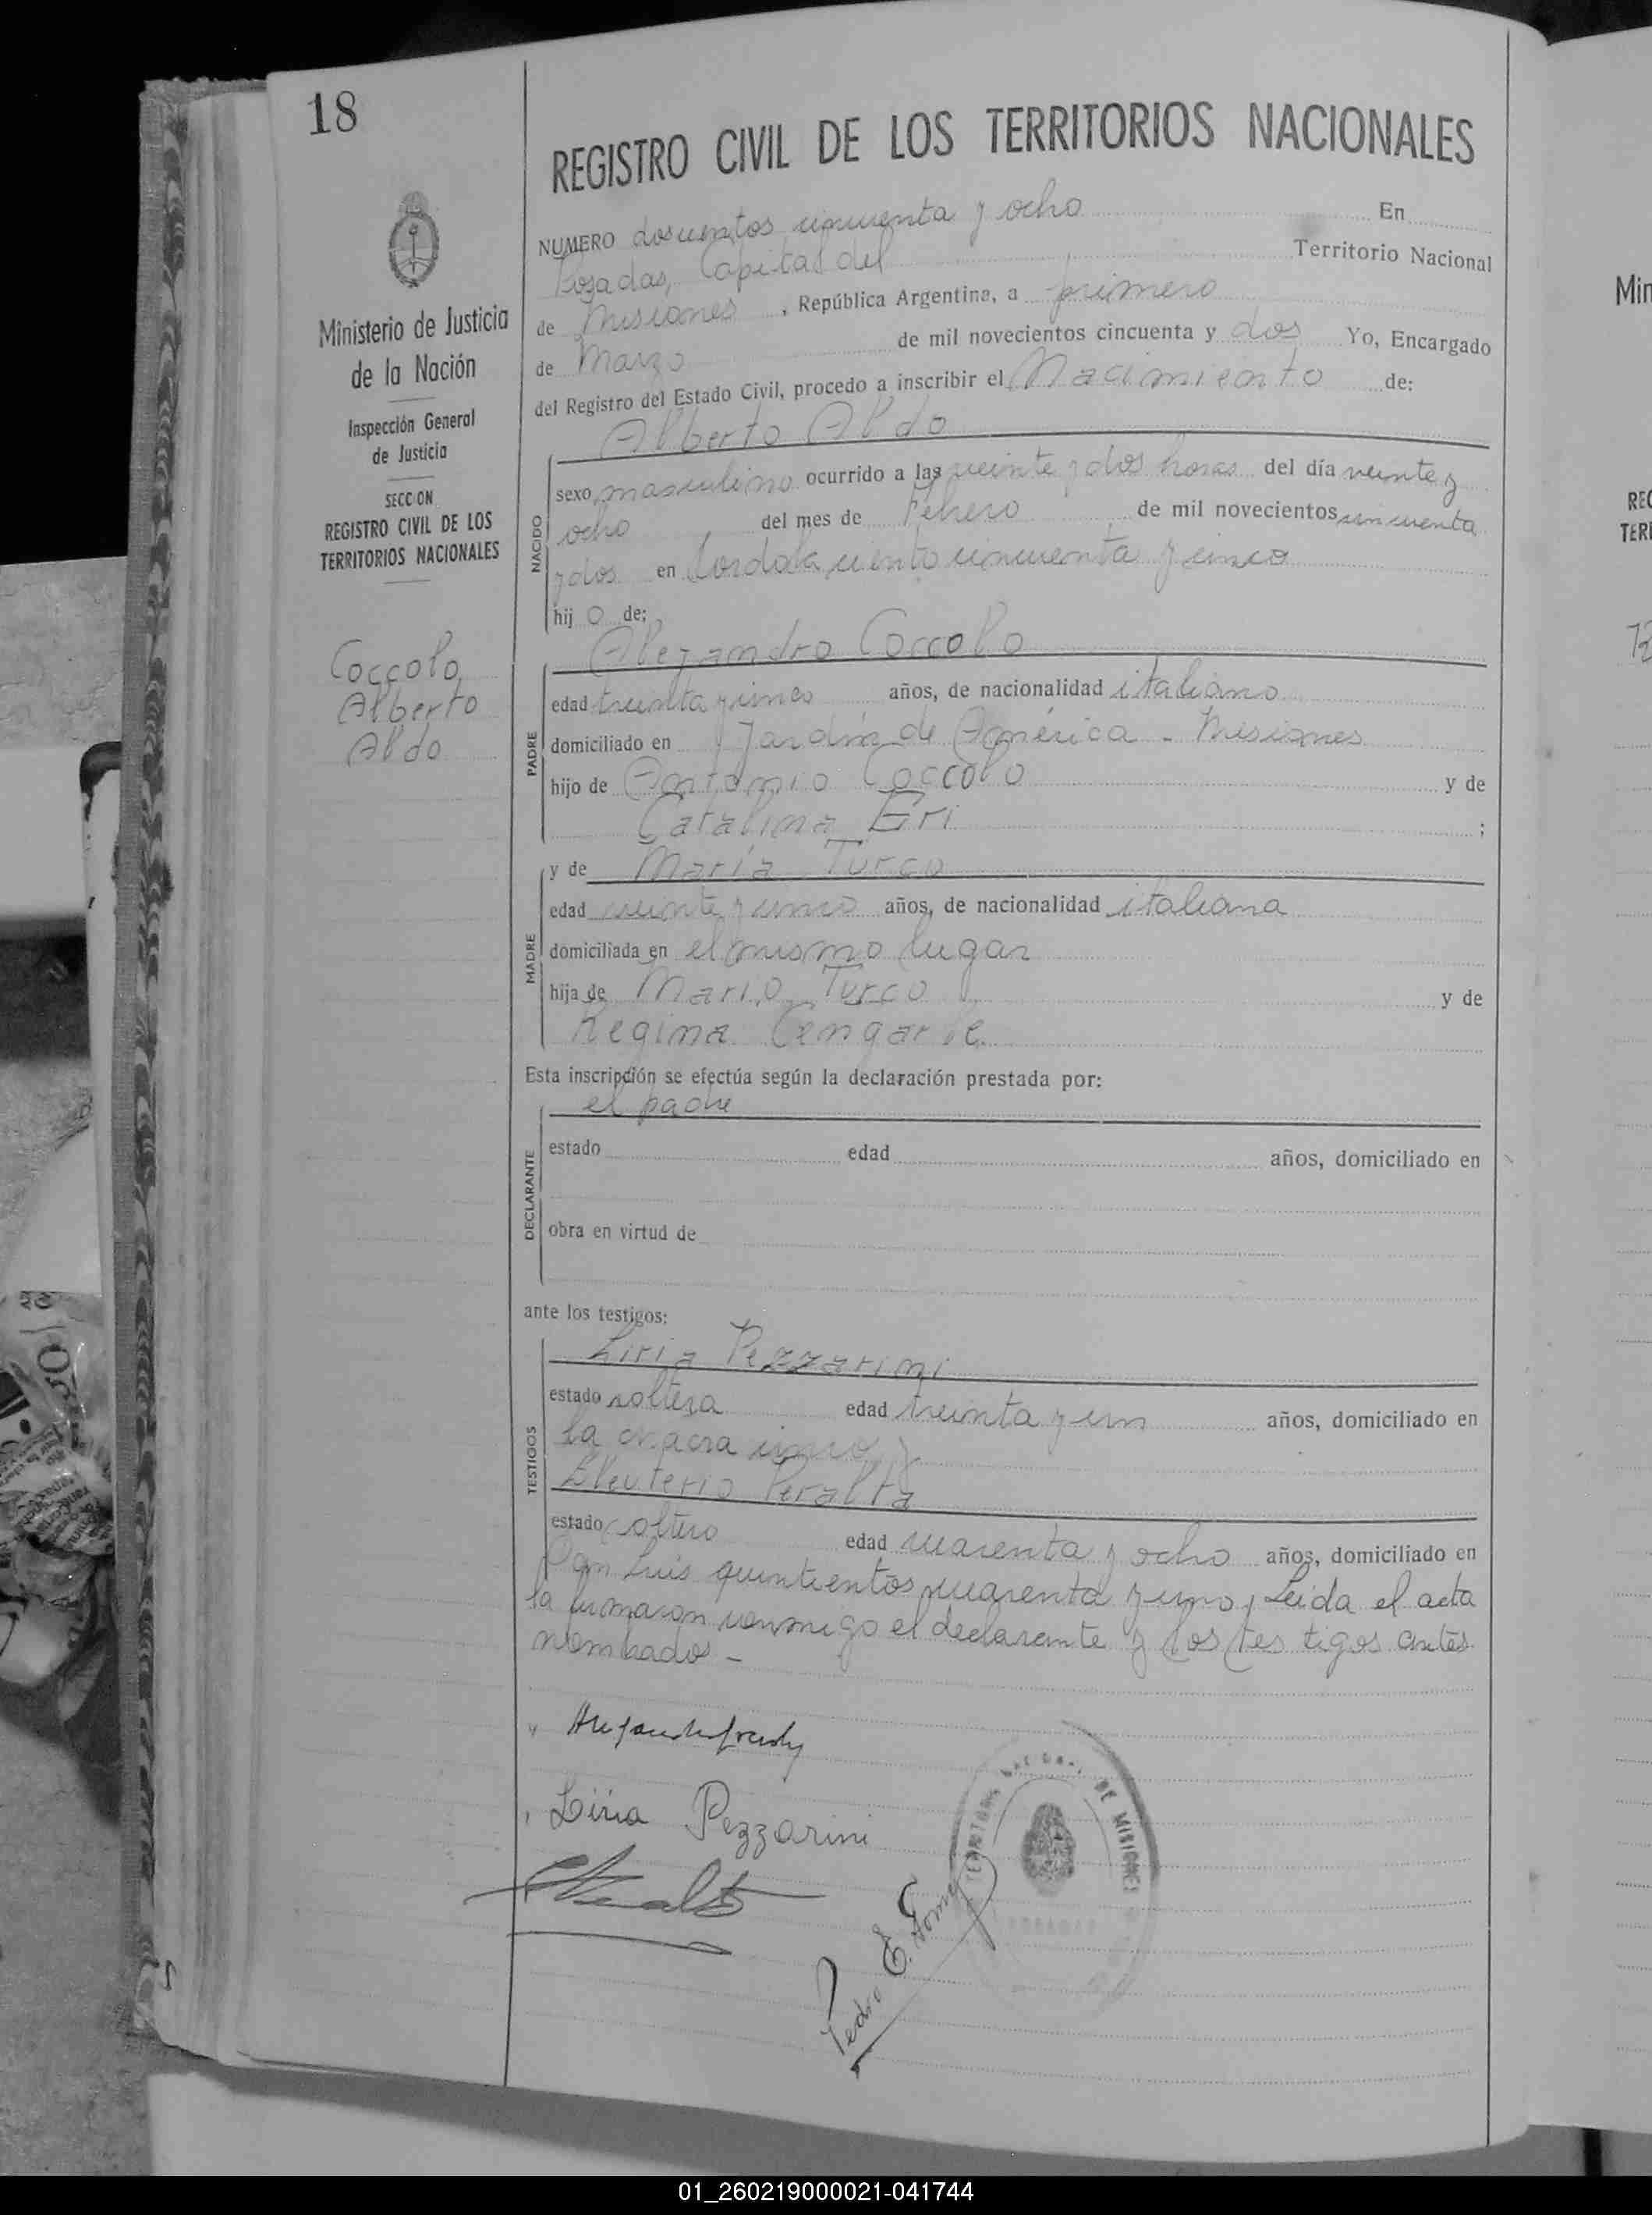 18
REGISTRO CIVIL DE LOS TERRITORIOS NACIONALES
Ministerio de Justicia
de la Nación
Inspección General
de Justicia
SECCION
REGISTRO CIVIL DE LOS
TERRITORIOS NACIONALES
Coccolo
Alberto
Aldo
NUMERO doscientos cincuenta y ocho En
Posadas, Capital del Territorio Nacional
de Misiones, República Argentina, a primero
de Marzo de mil novecientos cincuenta y dos Yo, Encargado
del Registro del Estado Civil, procedo a inscribir el Nacimiento de:
Alberto Aldo
NACIDO
sexo masculino ocurrido a las veinte y dos horas del día veinte y
ocho del mes de Febrero de mil novecientos cincuenta
y dos en Cordoba ciento cincuenta y cinco
hij o de:
Alejandro Coccolo
PADRE
edad treinta y cinco años, de nacionalidad italiano
domiciliado en Jardín de América - Misiones
hijo de Antonio Coccolo y de
Catalina Eri ;
y de María Turco
MADRE
edad veinte y cinco años, de nacionalidad italiana
domiciliada en el mismo lugar
hija de Mario Turco y de
Regina Cengarle
Esta inscripción se efectúa según la declaración prestada por:
el padre
DECLARANTE
estado edad años, domiciliado en
obra en virtud de
ante los testigos:
Liria Pezzarini
TESTIGOS
estado soltera edad treinta y un años, domiciliado en
la chacra cinco y
Eleuterio Peralta
estado soltero edad cuarenta y ocho años, domiciliado en
San Luis quinientos cuarenta y uno, Leida el acta
la firmaron conmigo el declarante y los testigos antes
nombrados -
Liria Pezzarini
Pedro E. Gomez
TERRITORIO NACIONAL DE MISIONES
POSADAS
Min
REG
TERR
01_260219000021-041744